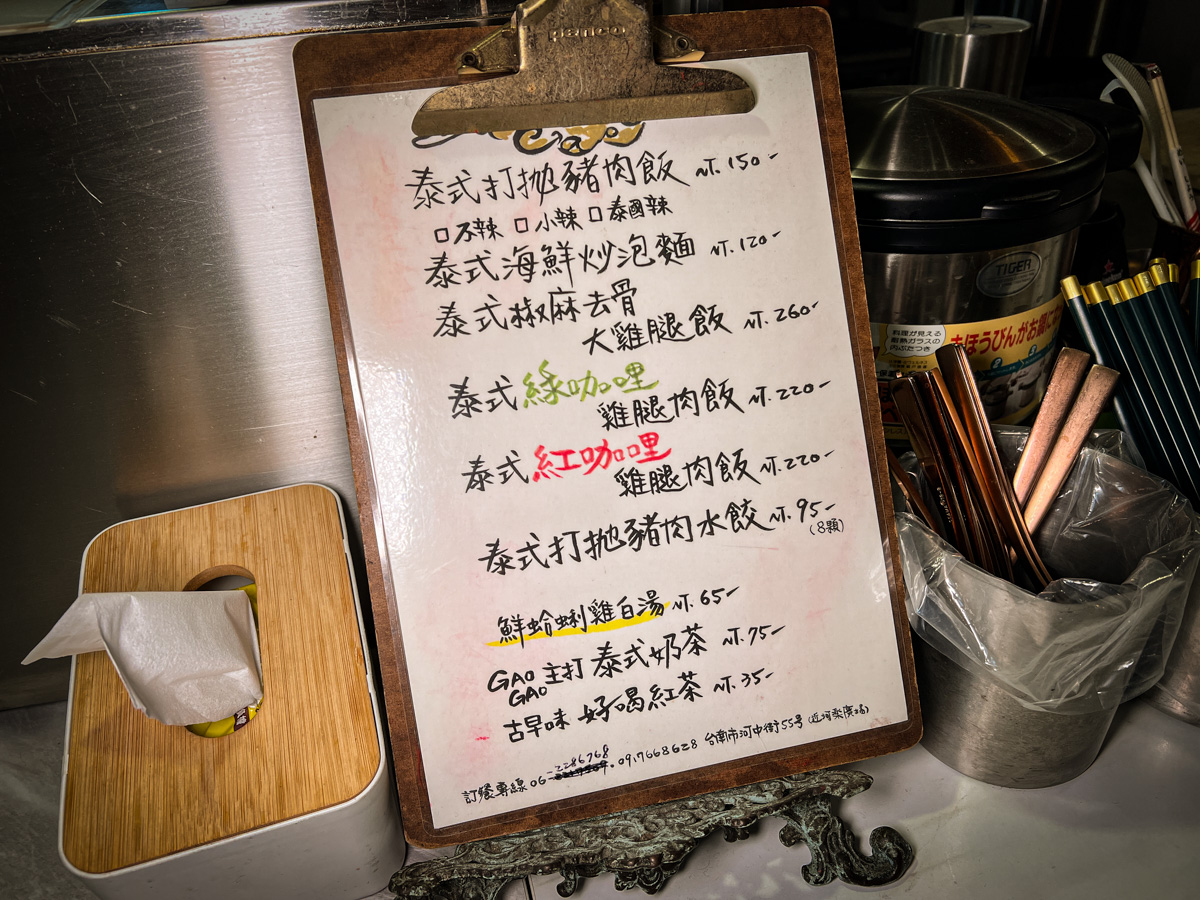 Hanco
泰式打拋豬肉飯 NT.150-
□不辣 □小辣 □泰國辣
泰式海鮮炒泡麵 NT.120-
泰式椒麻去骨
大雞腿飯 NT.260-
泰式綠咖哩
雞腿肉飯 NT.220-
泰式紅咖哩
雞腿肉飯 NT.220-
泰式打拋豬肉水餃 NT.95-
(8顆)
鮮蛤蜊雞白湯 NT.65-
GAO GAO 主打 泰式奶茶 NT.75-
古早味 好喝紅茶 NT.35-
訂餐專線 06-2286768 . 0917668628 台南市河中街55號 (近河樂廣場)
TIGER
料理が見える
耐熱ガラスの
内ぶたつき
まほうびんがお鍋に